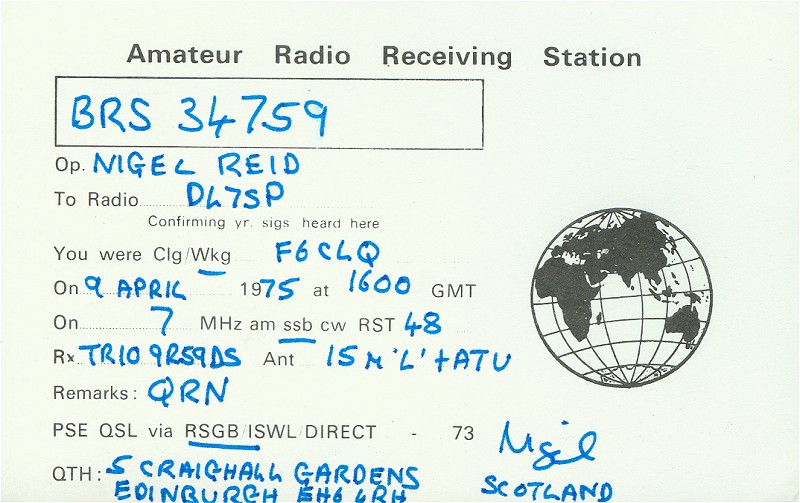 Amateur Radio Receiving Station
BRS 34759
Op. NIGEL REID
To Radio DL7SP
Confirming yr. sigs heard here
You were Clg/Wkg F6CLQ
On 9 APRIL 1975 at 1600 GMT
On 7 MHz am ssb cw RST 48
Rx TRIO 9R59DS Ant 15 M 'L' + ATU
Remarks: QRN
PSE QSL via RSGB/ISWL/DIRECT - 73 Nigel
QTH: 5 CRAIGHALL GARDENS
EDINBURGH EH6 4RH SCOTLAND